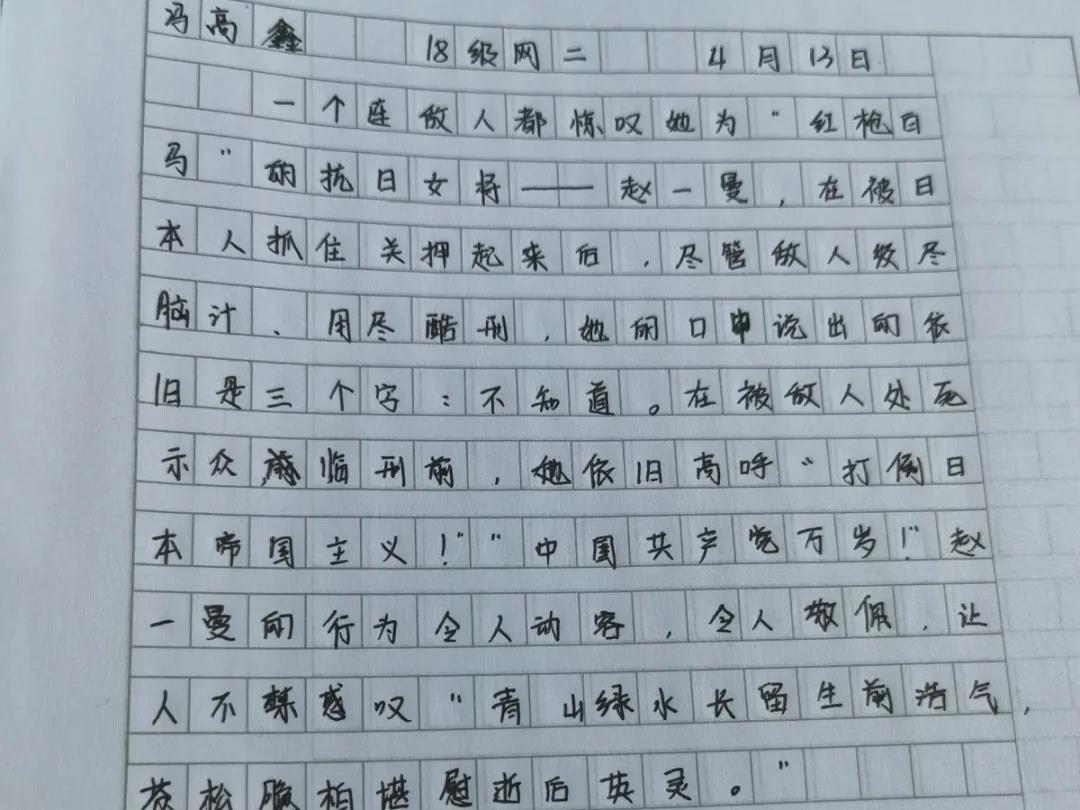 冯高鑫 18级网二 4月13日
一个连敌人都惊叹她为“红枪白
马”的抗日女将——赵一曼，在被日
本人抓住关押起来后，尽管敌人级尽
脑计、用尽酷刑，她的口中说出的依
旧是三个字：不知道。在被敌人处死
示众临刑前，她依旧高呼“打倒日
本帝国主义！”“中国共产党万岁！”赵
一曼的行为令人动容，令人敬佩，让
人不禁感叹“青山绿水长留生前浩气，
苍松 柏堪慰逝后英灵。”